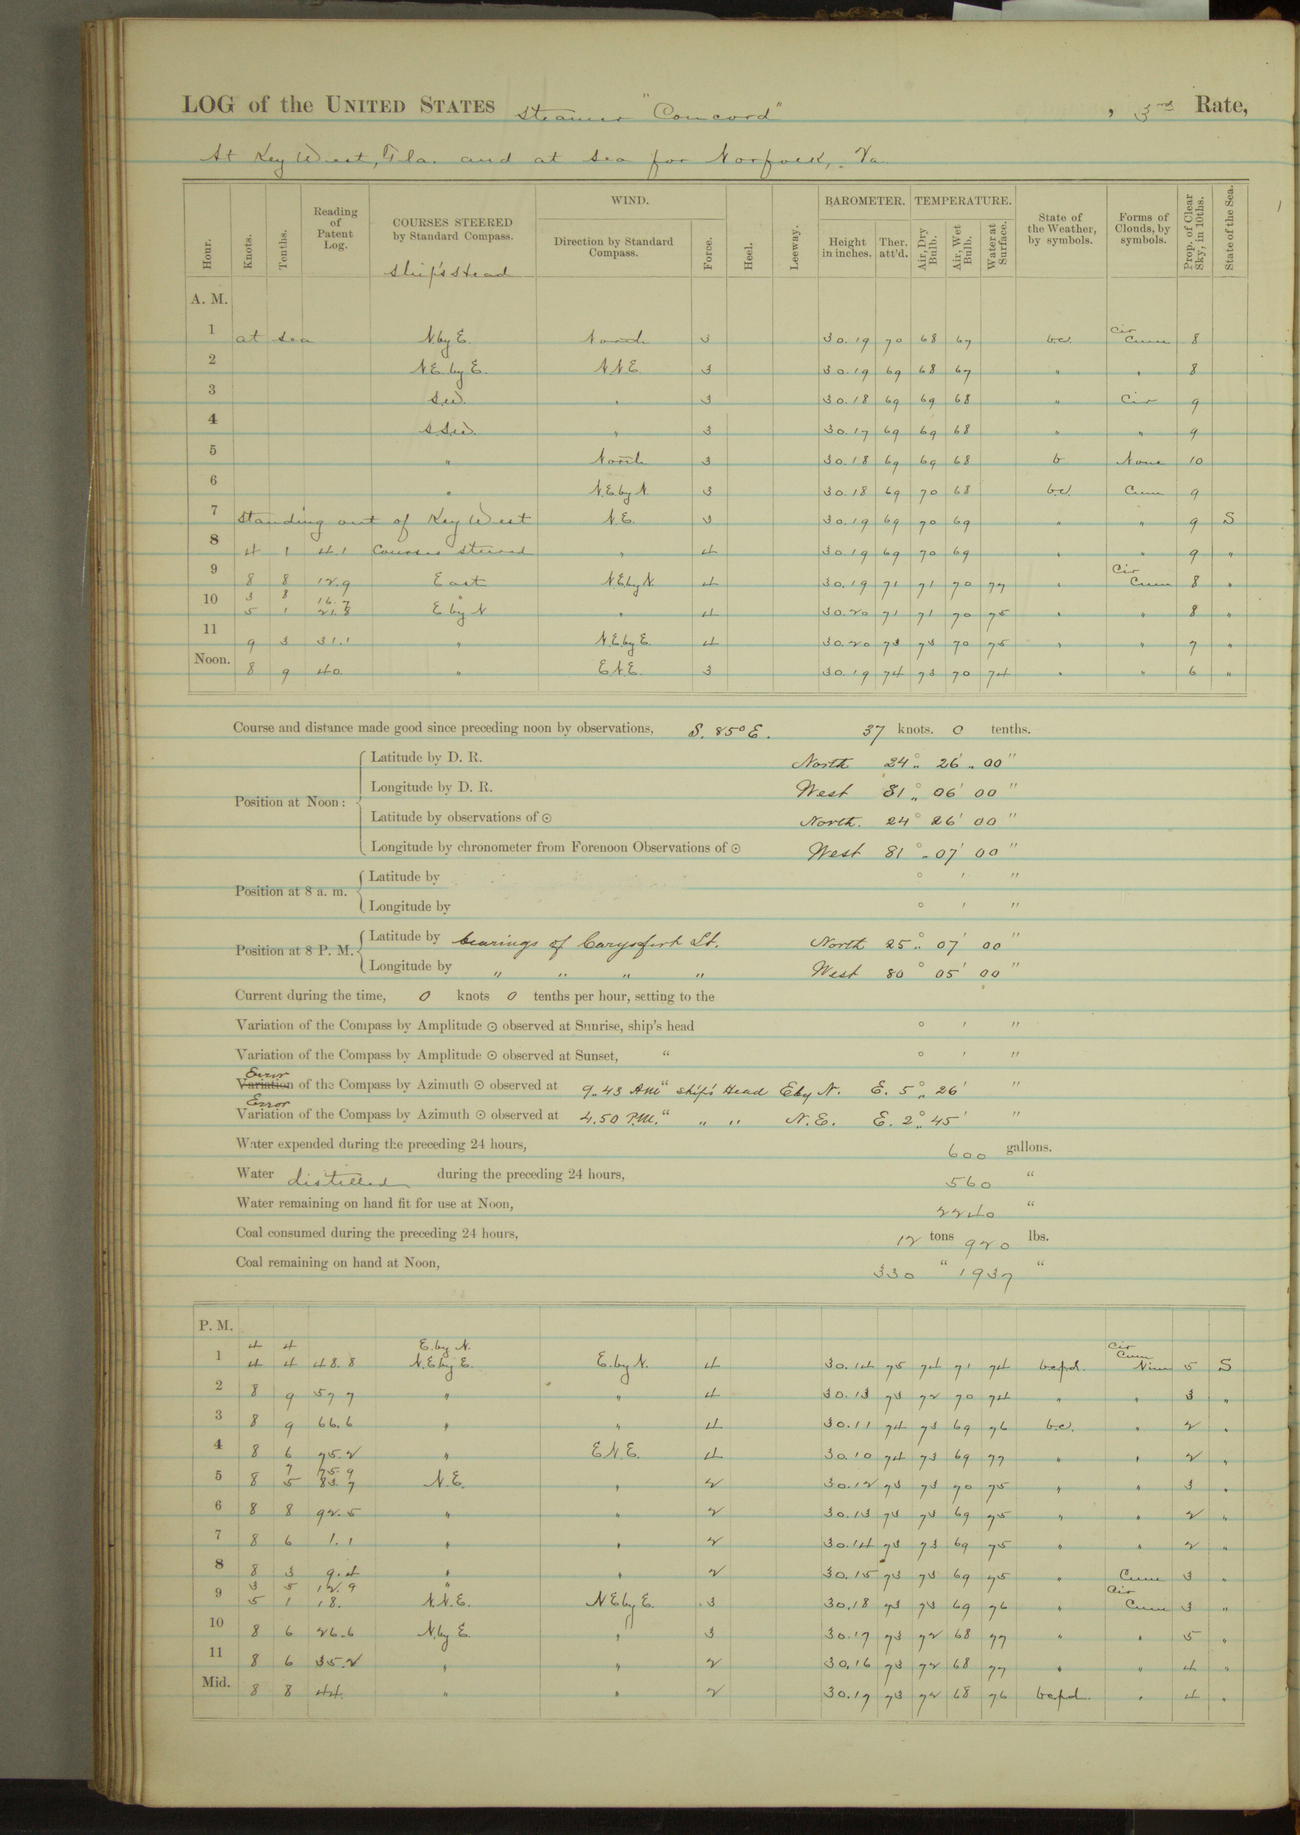 LOG of the UNITED STATES Steamer "Concord", 3rd Rate,
At Key West, Fla. and at sea for Norfolk, Va.
Hour. Knots. Tenths. Reading of Patent Log. COURSES STEERED by Standard Compass. Ship's Head WIND. Direction by Standard Compass. Force. Heel. Leeway. BAROMETER. Height in inches. Ther. att'd. TEMPERATURE. Air, Dry Bulb. Air, Wet Bulb. Water at Surface. State of the Weather, by symbols. Forms of Clouds, by symbols. Prop. of Clear Sky, in 10ths. State of the Sea.
A. M.
1 at sea N.by E. North 3 30.19 70 68 67 b.c. Cir Cum 8
2 N.E. by E. N.N.E. 3 30.19 69 68 67 " " 8
3 S.W. " 3 30.18 69 69 68 " Cir 9
4 S.S.W. " 3 30.17 69 69 68 " " 9
5 " North 3 30.18 69 69 68 b None 10
6 " N.E.by N. 3 30.18 69 70 68 b.c. Cum 9
7 Standing out of Key West N.E. 3 30.19 69 70 69 " " 9 S
8 4 1 4.1 Courses steered " 4 30.19 69 70 69 " " 9 "
9 8 8 12.9 East N.E.by N. 4 30.19 71 71 70 77 " Cir Cum 8 "
10 3 8 16.7
5 1 21.8 E. by N " 4 30.20 71 71 70 75 " " 8 "
11 9 3 31.1 " N.E.by E. 4 30.20 73 73 70 75 " " 7 "
Noon. 8 9 40. " E.N.E. 3 30.19 74 73 70 74 " " 6 "
Course and distance made good since preceding noon by observations, S. 85° E. 37 knots. 0 tenths.
Position at Noon: Latitude by D. R. North 24° 26' 00"
Longitude by D. R. West 81° 06' 00"
Latitude by observations of ⊙ North. 24° 26' 00"
Longitude by chronometer from Forenoon Observations of ⊙ West 81° 07' 00"
Position at 8 a. m. Latitude by ° ' "
Longitude by ° ' "
Position at 8 P. M. Latitude by bearings of Carysfort Lt. North 25° 07' 00"
Longitude by " " " " West 80° 05' 00"
Current during the time, 0 knots 0 tenths per hour, setting to the
Variation of the Compass by Amplitude ⊙ observed at Sunrise, ship's head ° ' "
Variation of the Compass by Amplitude ⊙ observed at Sunset, " ° ' "
Error Variation of the Compass by Azimuth ⊙ observed at 9.43 AM " ship's Head E by N. E. 5° 26' "
Error Variation of the Compass by Azimuth ⊙ observed at 4.50 P.M. " " " N.E. E. 2° 45' "
Water expended during the preceding 24 hours, 600 gallons.
Water distilled during the preceding 24 hours, 560 "
Water remaining on hand fit for use at Noon, 2240 "
Coal consumed during the preceding 24 hours, 12 tons 920 lbs.
Coal remaining on hand at Noon, 330 " 1937 "
P. M.
4 4 E. by N.
1 4 4 48.8 N.E by E. E. by N. 4 30.14 75 74 71 74 b.c.p.d. Cir Cum Nim 5 S
2 8 9 57.7 " " 4 30.13 73 72 70 74 " " 3 "
3 8 9 66.6 " " 4 30.11 74 73 69 76 b.c. " 2 "
4 8 6 75.2 " E.N.E. 4 30.10 74 73 69 77 " " 2 "
7 75.9
5 8 5 83.7 N.E. " 2 30.12 73 73 70 75 " " 3 "
6 8 8 92.5 " " 2 30.13 73 73 69 75 " " 2 "
7 8 6 1.1 " " 2 30.14 73 73 69 75 " " 2 "
8 8 3 9.4 " " 2 30.15 73 73 69 75 " Cum 3 "
3 5 12.9 "
9 5 1 18. N.N.E. N.E by E. 3 30.18 73 73 69 76 " Cir Cum 3 "
10 8 6 26.6 N.by E. " 3 30.17 73 72 68 77 " " 5 "
11 8 6 35.2 " " 2 30.16 73 72 68 77 " " 4 "
Mid. 8 8 44. " " 2 30.17 73 72 68 76 b.c.p.d. " 4 "